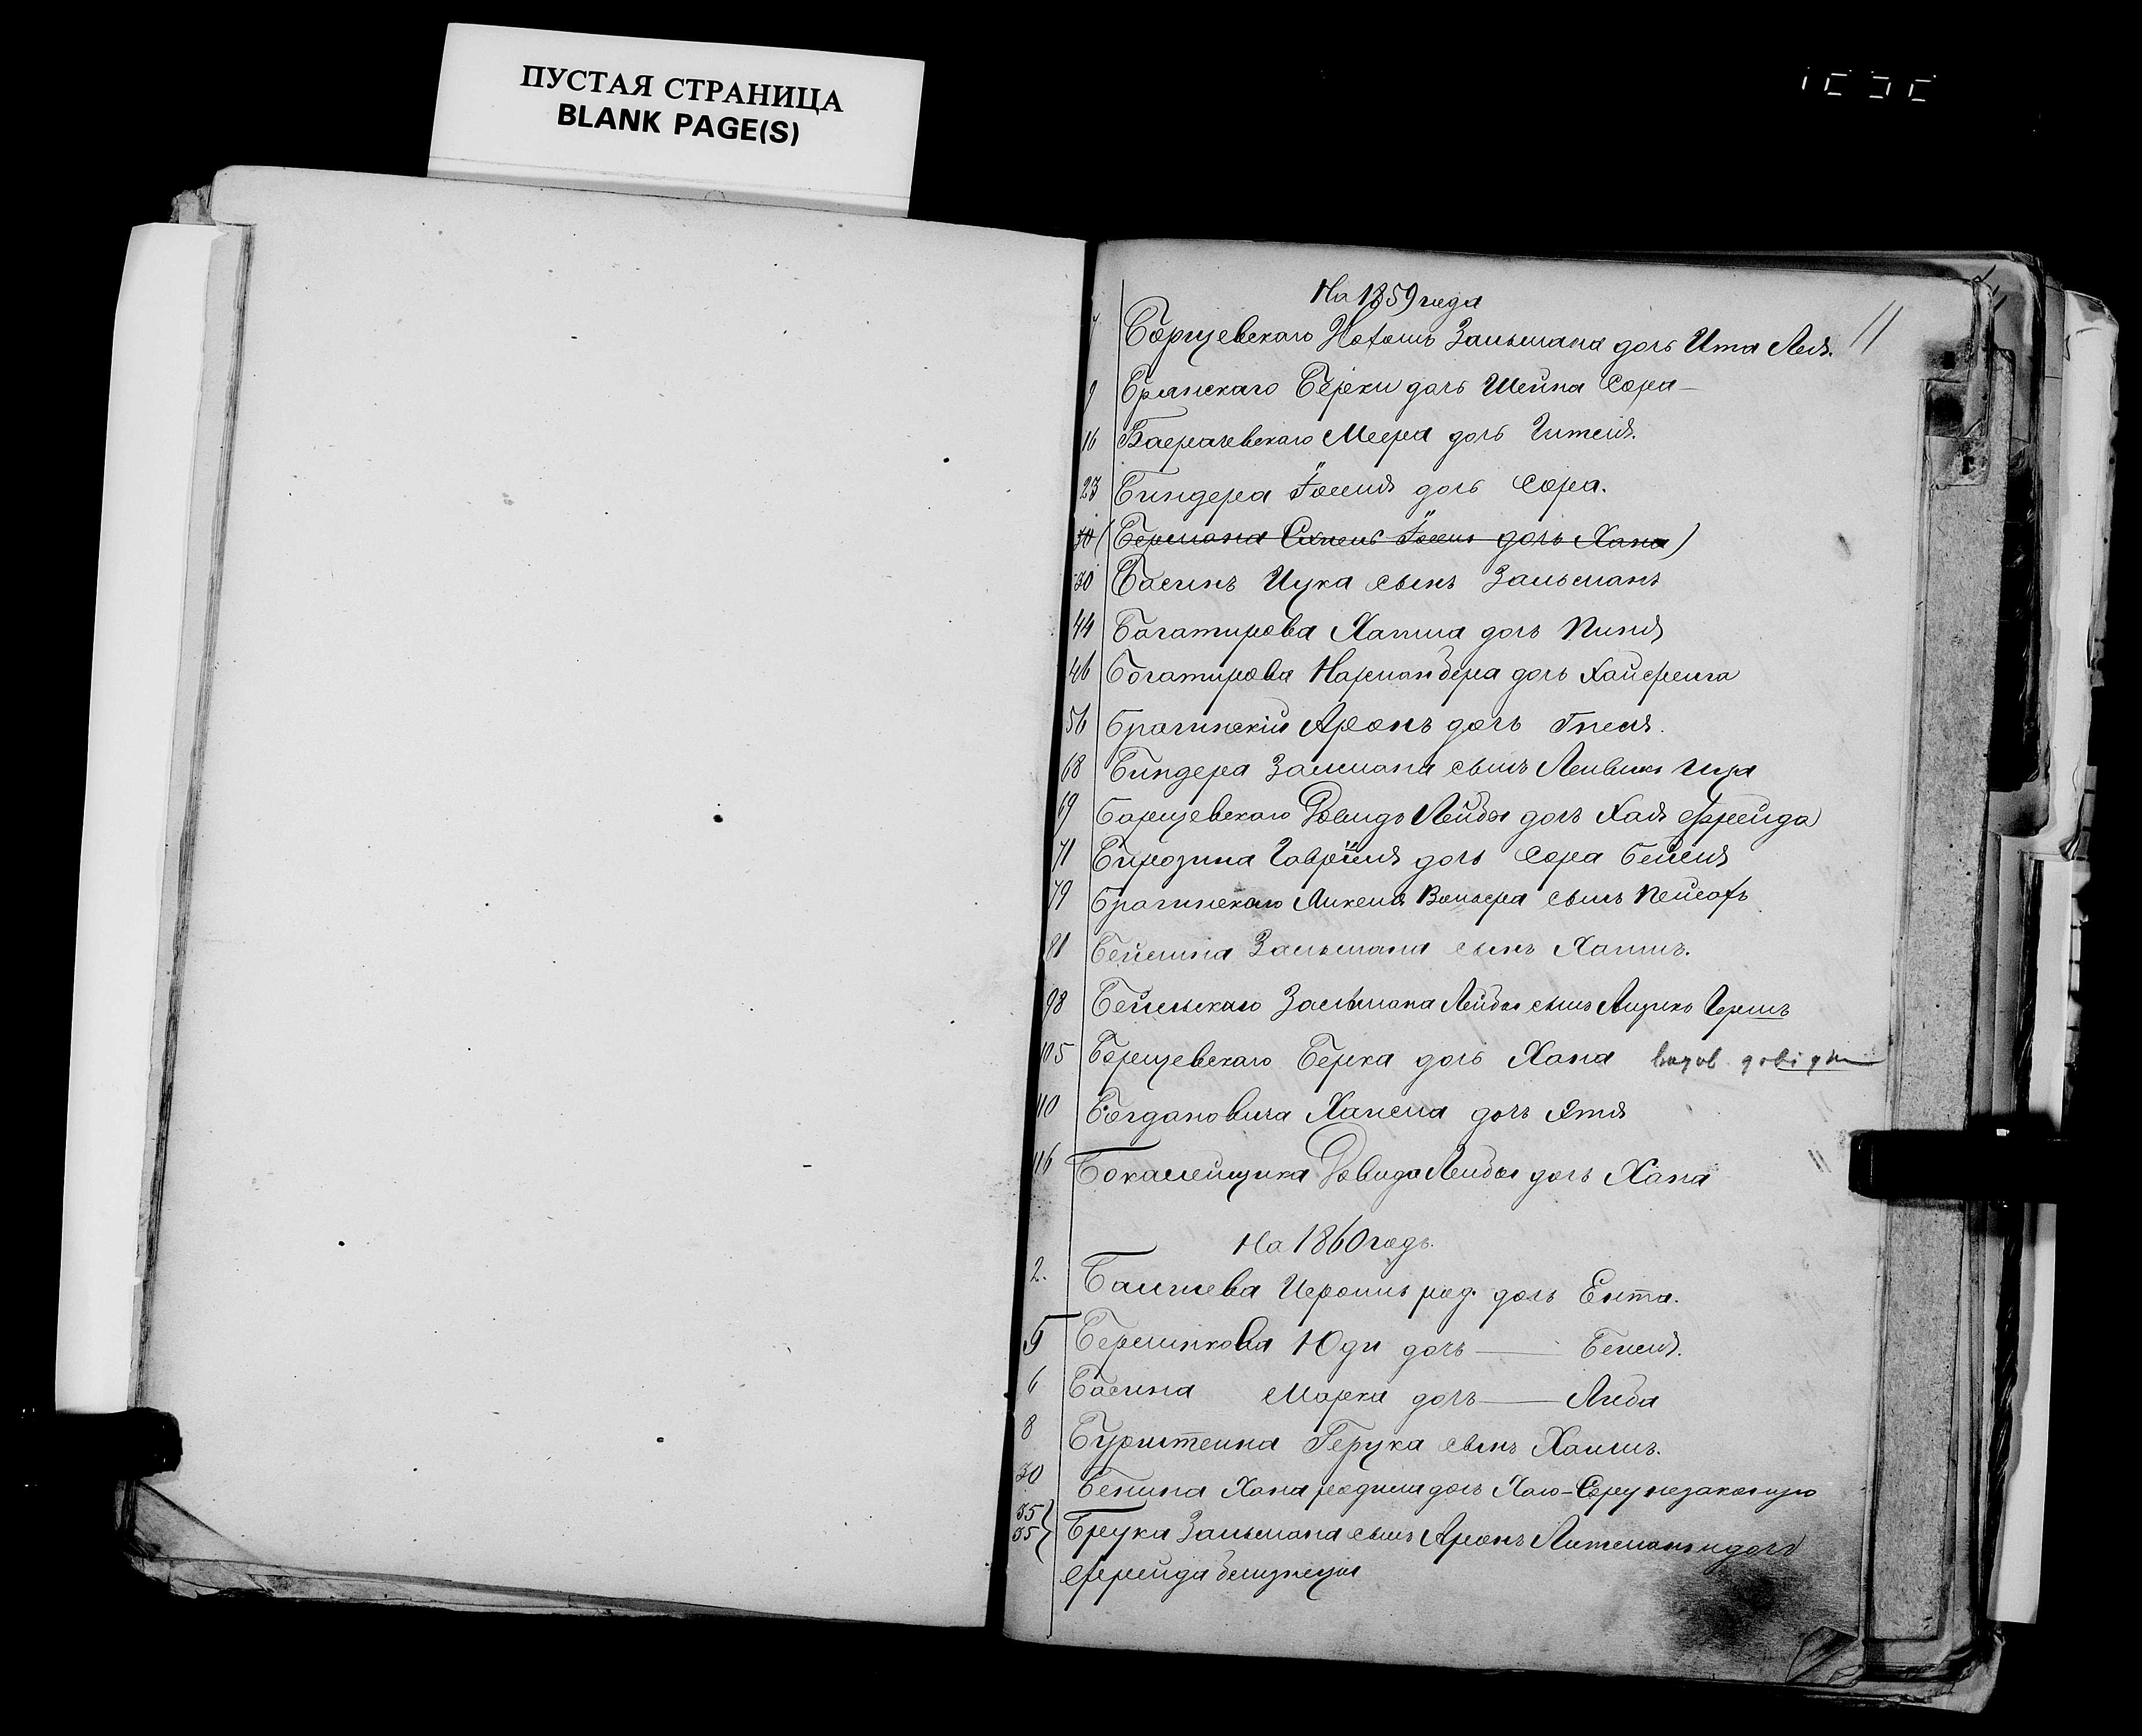 ПУСТАЯ СТРАНИЦА
BLANK PAGE(S)
На 1859 года
11
7 Борщевскаго Зальмана дочь Ита Лея.
9 Брянскаго Берки дочь Шейна Сора
16 Меера дочь Гителя.
23 Биндера Іоселя дочь Сора.
30 (Бермана Іосель дочь Хана)
30 Басинъ Ицка сынъ Зальманъ
44 Богатирова Хаима дочь Пиня
46 Богатирова дочь
56 Брагинскій Аронъ дочь Гнеся.
68 Биндера Залмана сынъ
69 Борщевскаго Довидъ Лейбы дочь Хая Фрейда
71 Бирозина Гавріеля дочь Сора Бейля
79 Брагинскаго Вольфа сынъ Пейсахъ
81 Бейлина Зальмана сынъ Хаимъ.
98 Бейльскаго Зальмана Лейбы сынъ Айзикъ Гершъ
105 Борщевскаго Берка дочь Хана
110 Богдановича Хацкеля дочь Этля
116 Бокалейщика Довида Лейбы дочь Хана
На 1860 годъ.
2. род. дочь Ента.
5 Берлинкова Юди дочь — Бейля.
6 Басина Марка дочь — Либа
8 Бурштейна сынъ Хаимъ.
30 Бенина Хана родила дочь Хаю-Сору незаконную
35} 35} Брука Зальмана сынъ Аронъ и дочь
Фрейда близнецы